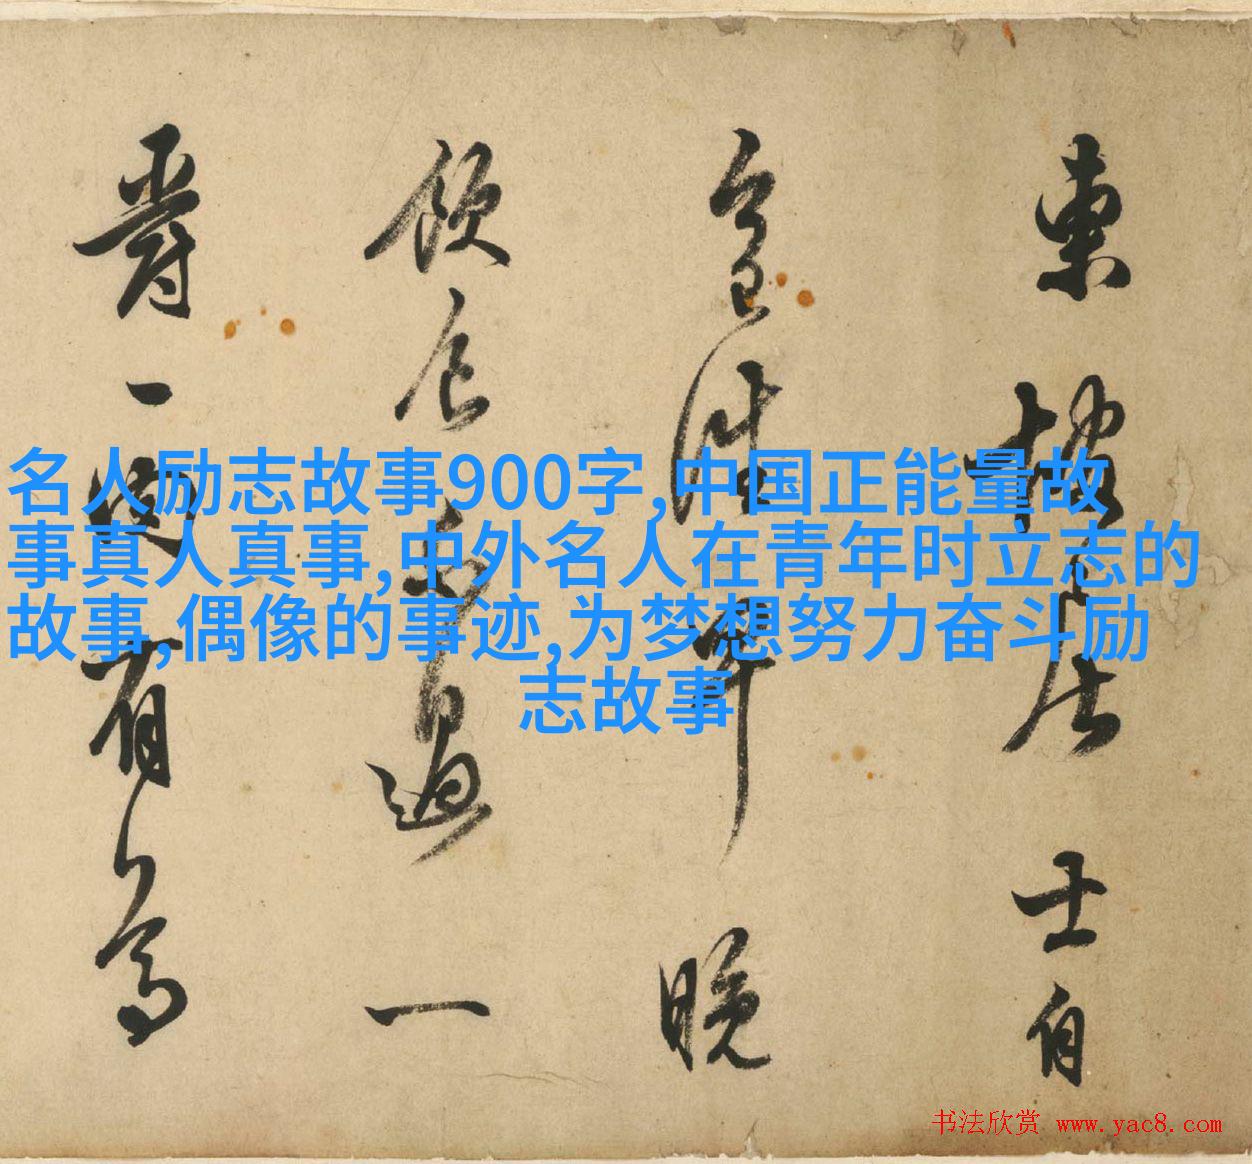 东坡居士自
今日以往早晚
饮食不过一
爵一肉有尊
名人励志故事900字,中国正能量故
事真人真事,中外名人在青年时立志的
故事,偶像的事迹,为梦想努力奋斗励
志故事
书法欣赏 www.yac8.com